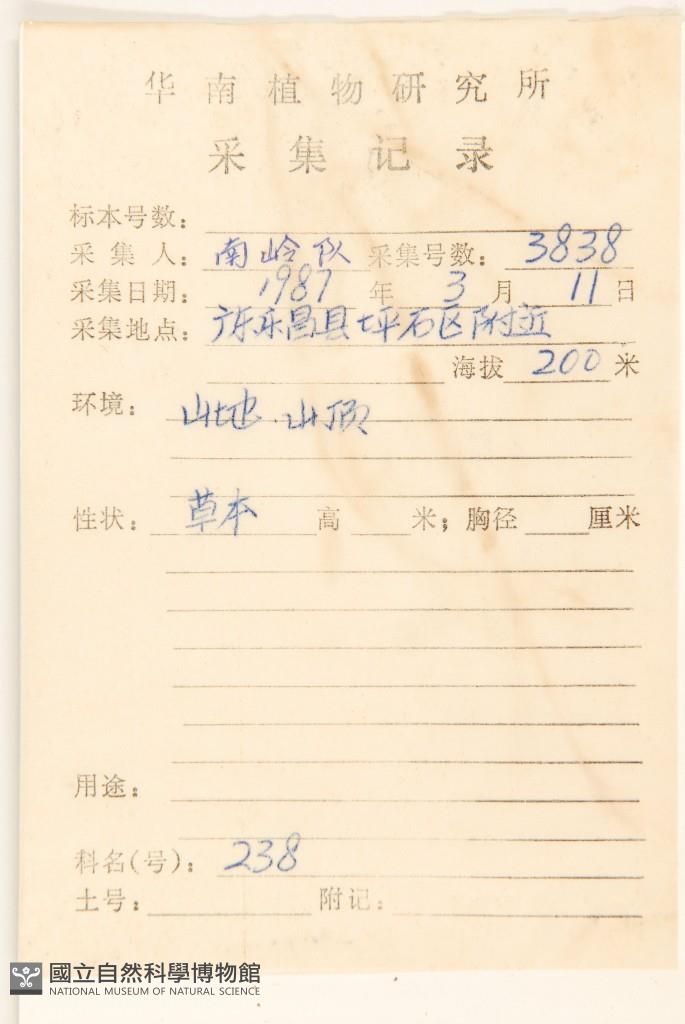 华南植物研究所
采集记录
标本号数：
采集人：南岭队 采集号数：3838
采集日期：1987年3月11日
采集地点：广东乐昌县坪石区附近
海拔200米
环境：山地．山顶
性状：草本 高 米；胸径 厘米
用途：
科名(号)：238
土号： 附记：
國立自然科學博物館
NATIONAL MUSEUM OF NATURAL SCIENCE